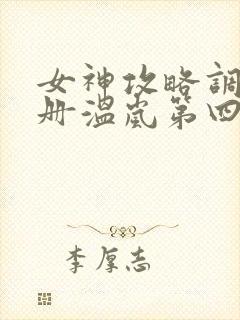 女神攻略調
册溫嵐第四
李厚志